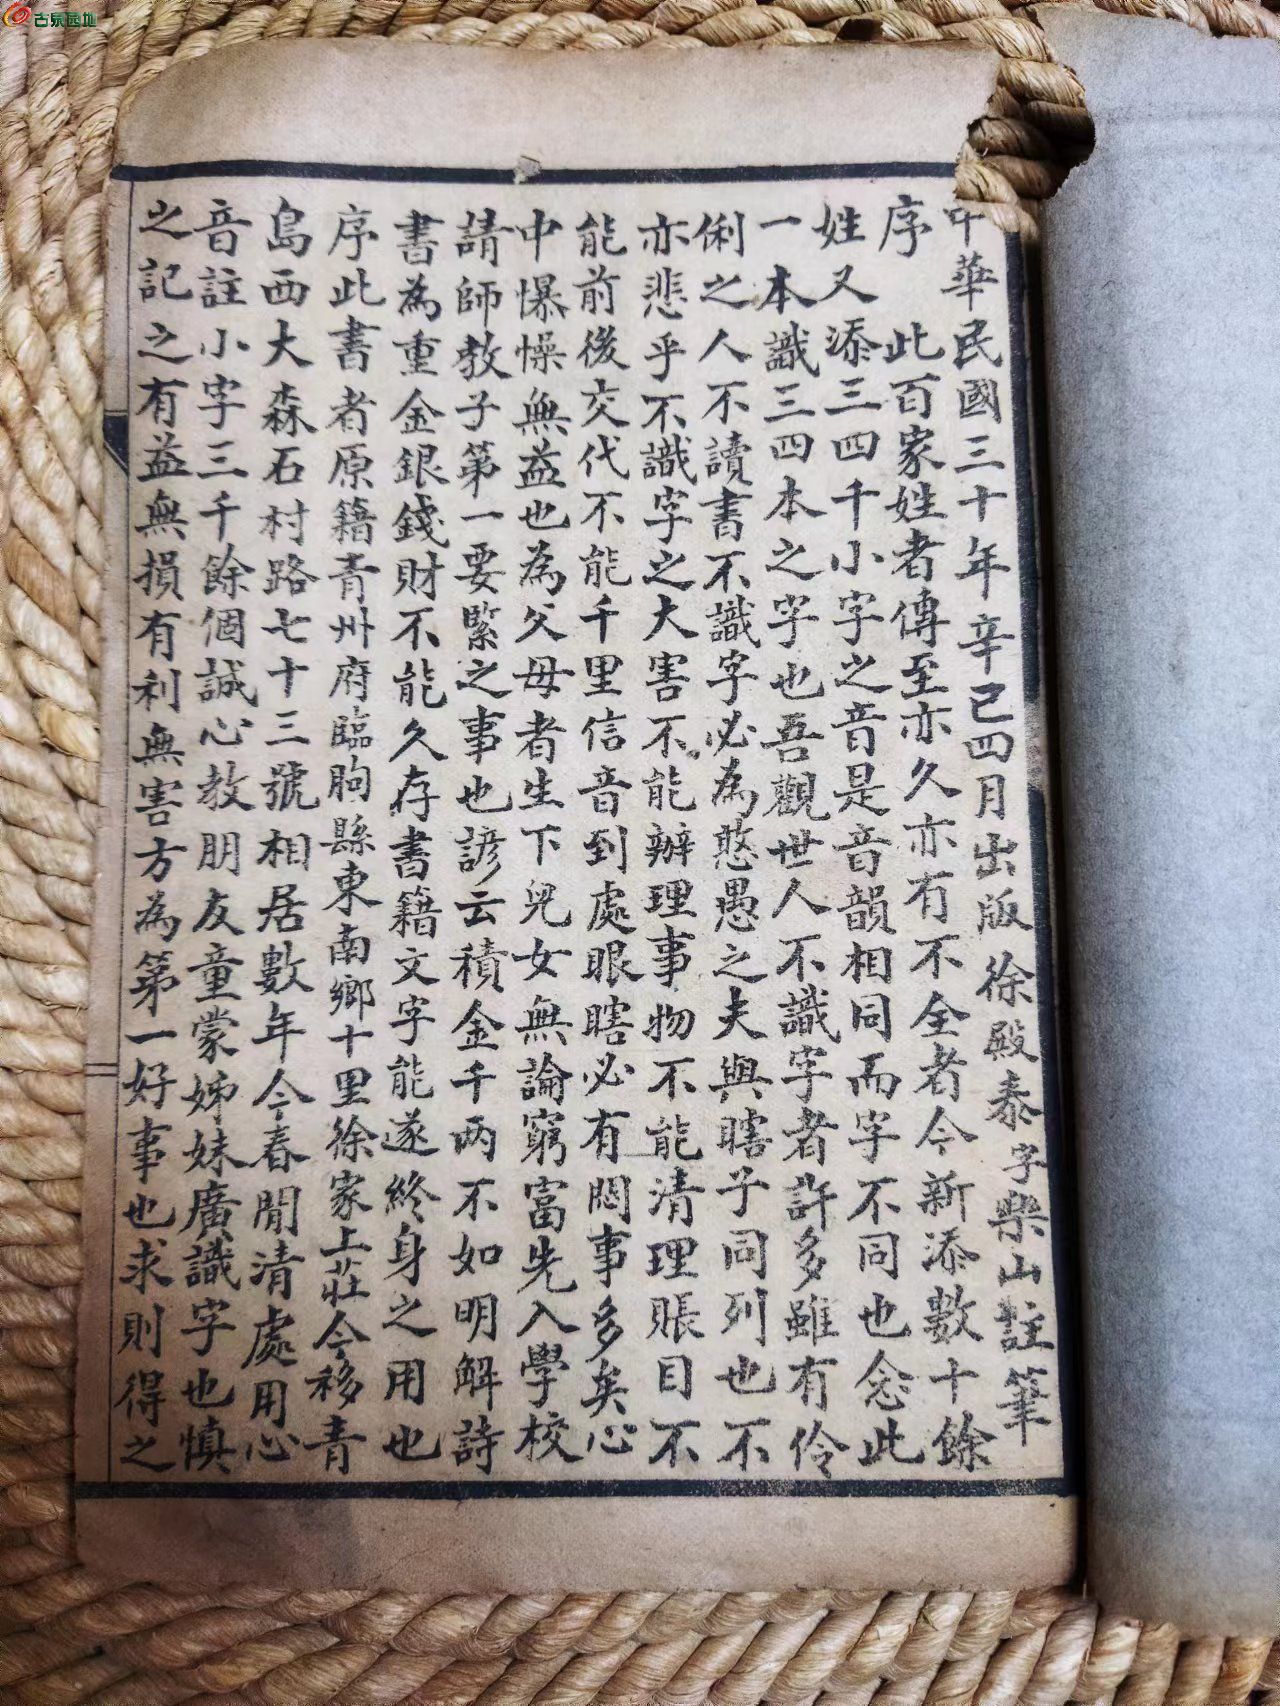 古泉园地
中華民國三十年辛已四月出版徐殿泰字樂山註筆
序 此百家姓者傳至亦久亦有不全者今新添數十餘
姓又添三四千小字之音是音韻相同而字不同也念此
一本識三四本之字也吾觀世人不識字者許多雖有伶
俐之人不讀書不識字必為憨愚之夫與瞎子同列也不
亦悲乎不識字之大害不能辦理事物不能清理賬目不
能前後交代不能千里信音到處眼瞎必有悶事多矣心
中懆燥無益也為父母者生下兒女無論窮富先入學校
請師教子第一要緊之事也諺云積金千两不如明解詩
書為重金銀錢財不能久存書籍文字能遂終身之用也
序此書者原籍青州府臨朐縣東南鄉十里徐家上莊今移青
島西大森石村路七十三號相居數年今春閒清處用心
音註小字三千餘個誠心教朋友童蒙姊妹廣識字也慎
之記之有益無損有利無害方為第一好事也求則得之